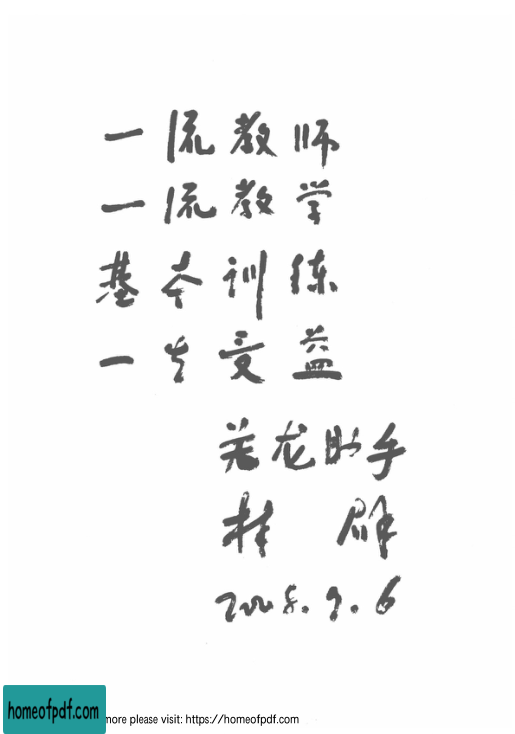 一流教师
一流教学
基本训练
一生受益
助手
林群
2008.9.6
homeofpdf.com
more please visit: https://homeofpdf.com